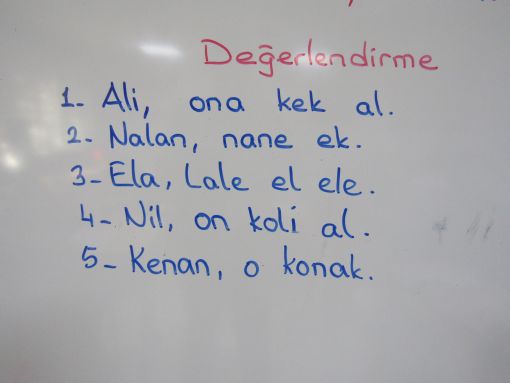 Değerlendirme
1- Ali, ona kek al.
2- Nalan, nane ek.
3- Ela, Lale el ele.
4- Nil, on koli al.
5- Kenan, o konak.